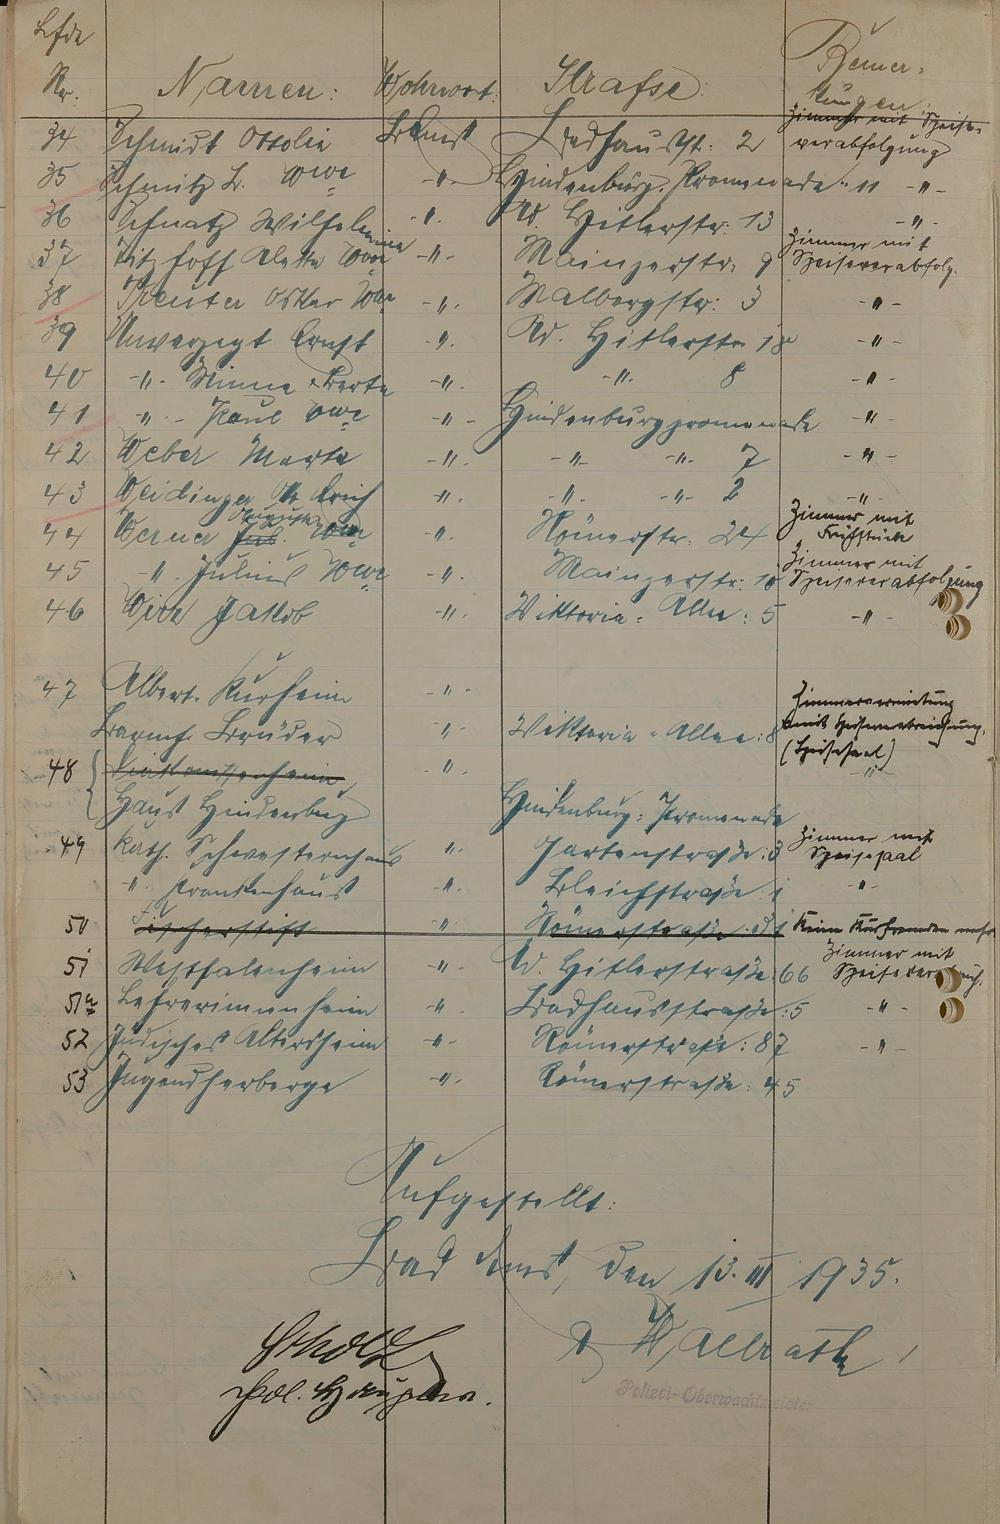 Lfde
Nr: Namen: Wohnort: Strafse: Bemer-
kungen:
34 Schmidt Ottolie B. Ems Badhausstr: 2 Zimmer mit Speise-
verabfolgung
35 Schmitz B. Wwe -"- Hindenburg. Promenade 11 -"-
36 Schnatz Wilhelmine -"- Ad. Hitlerstr: 13 -"-
37 Titzhoff Alette Wwe -"- Mainzerstr. 9 Zimmer mit
Speiseverabfolg.
38 Treuter Oskar Wwe -"- Malbergstr: 3 -"-
39 Unverzagt Ernst -"- Ad. Hitlerstr 18 -"-
40 -"- Minna & Berta -"- -"- 8 -"-
41 -"- Paul Wwe -"- Hindenburgpromenade -"-
42 Weber Marta -"- -"- -"- 7 -"-
43 Weidinger Erich -"- -"- -"- 2 -"-
44 Werner Jak. Auguste Wwe -"- Römerstr: 24 Zimmer mit
Frühstück
45 -"- Julius Wwe -"- Mainzerstr: 10 Zimmer mit
Speiseverabfolgung
46 Wirz Jakob -"- Viktoria-Allee: 5 -"-
47 Albert-Kurheim -"-
Barmh. Brüder -"- Viktoria-Allee: 8 Zimmervermietung
mit Speiseverabreichung.
(Speisesaal)
48 Diakonissenheim -"- -"-
Haus Hindenburg Hindenburg-Promenade
49 Kath. Schwesternhaus -"- Gartenstraße: 3 Zimmer mit
Speisesaal
-"- Krankenhaus -"- Bleichstraße: 1 -"-
50 Fischerstift -"- Römerstraße: 51 Keine Kurfremden mehr
51 Westfalenheim -"- Ad. Hitlerstraße: 66 Zimmer mit
51a Lehrerinnenheim -"- Badhausstraße: 5 -"-
52 Jüdisches Altersheim -"- Römerstraße: 87 -"-
53 Jugendherberge -"- Römerstraße: 45
Aufgestellt:
Bad Ems, den 13. III 1935.
Wallrath
Pol. Hauptw.
Polizei-Oberwachtmeister